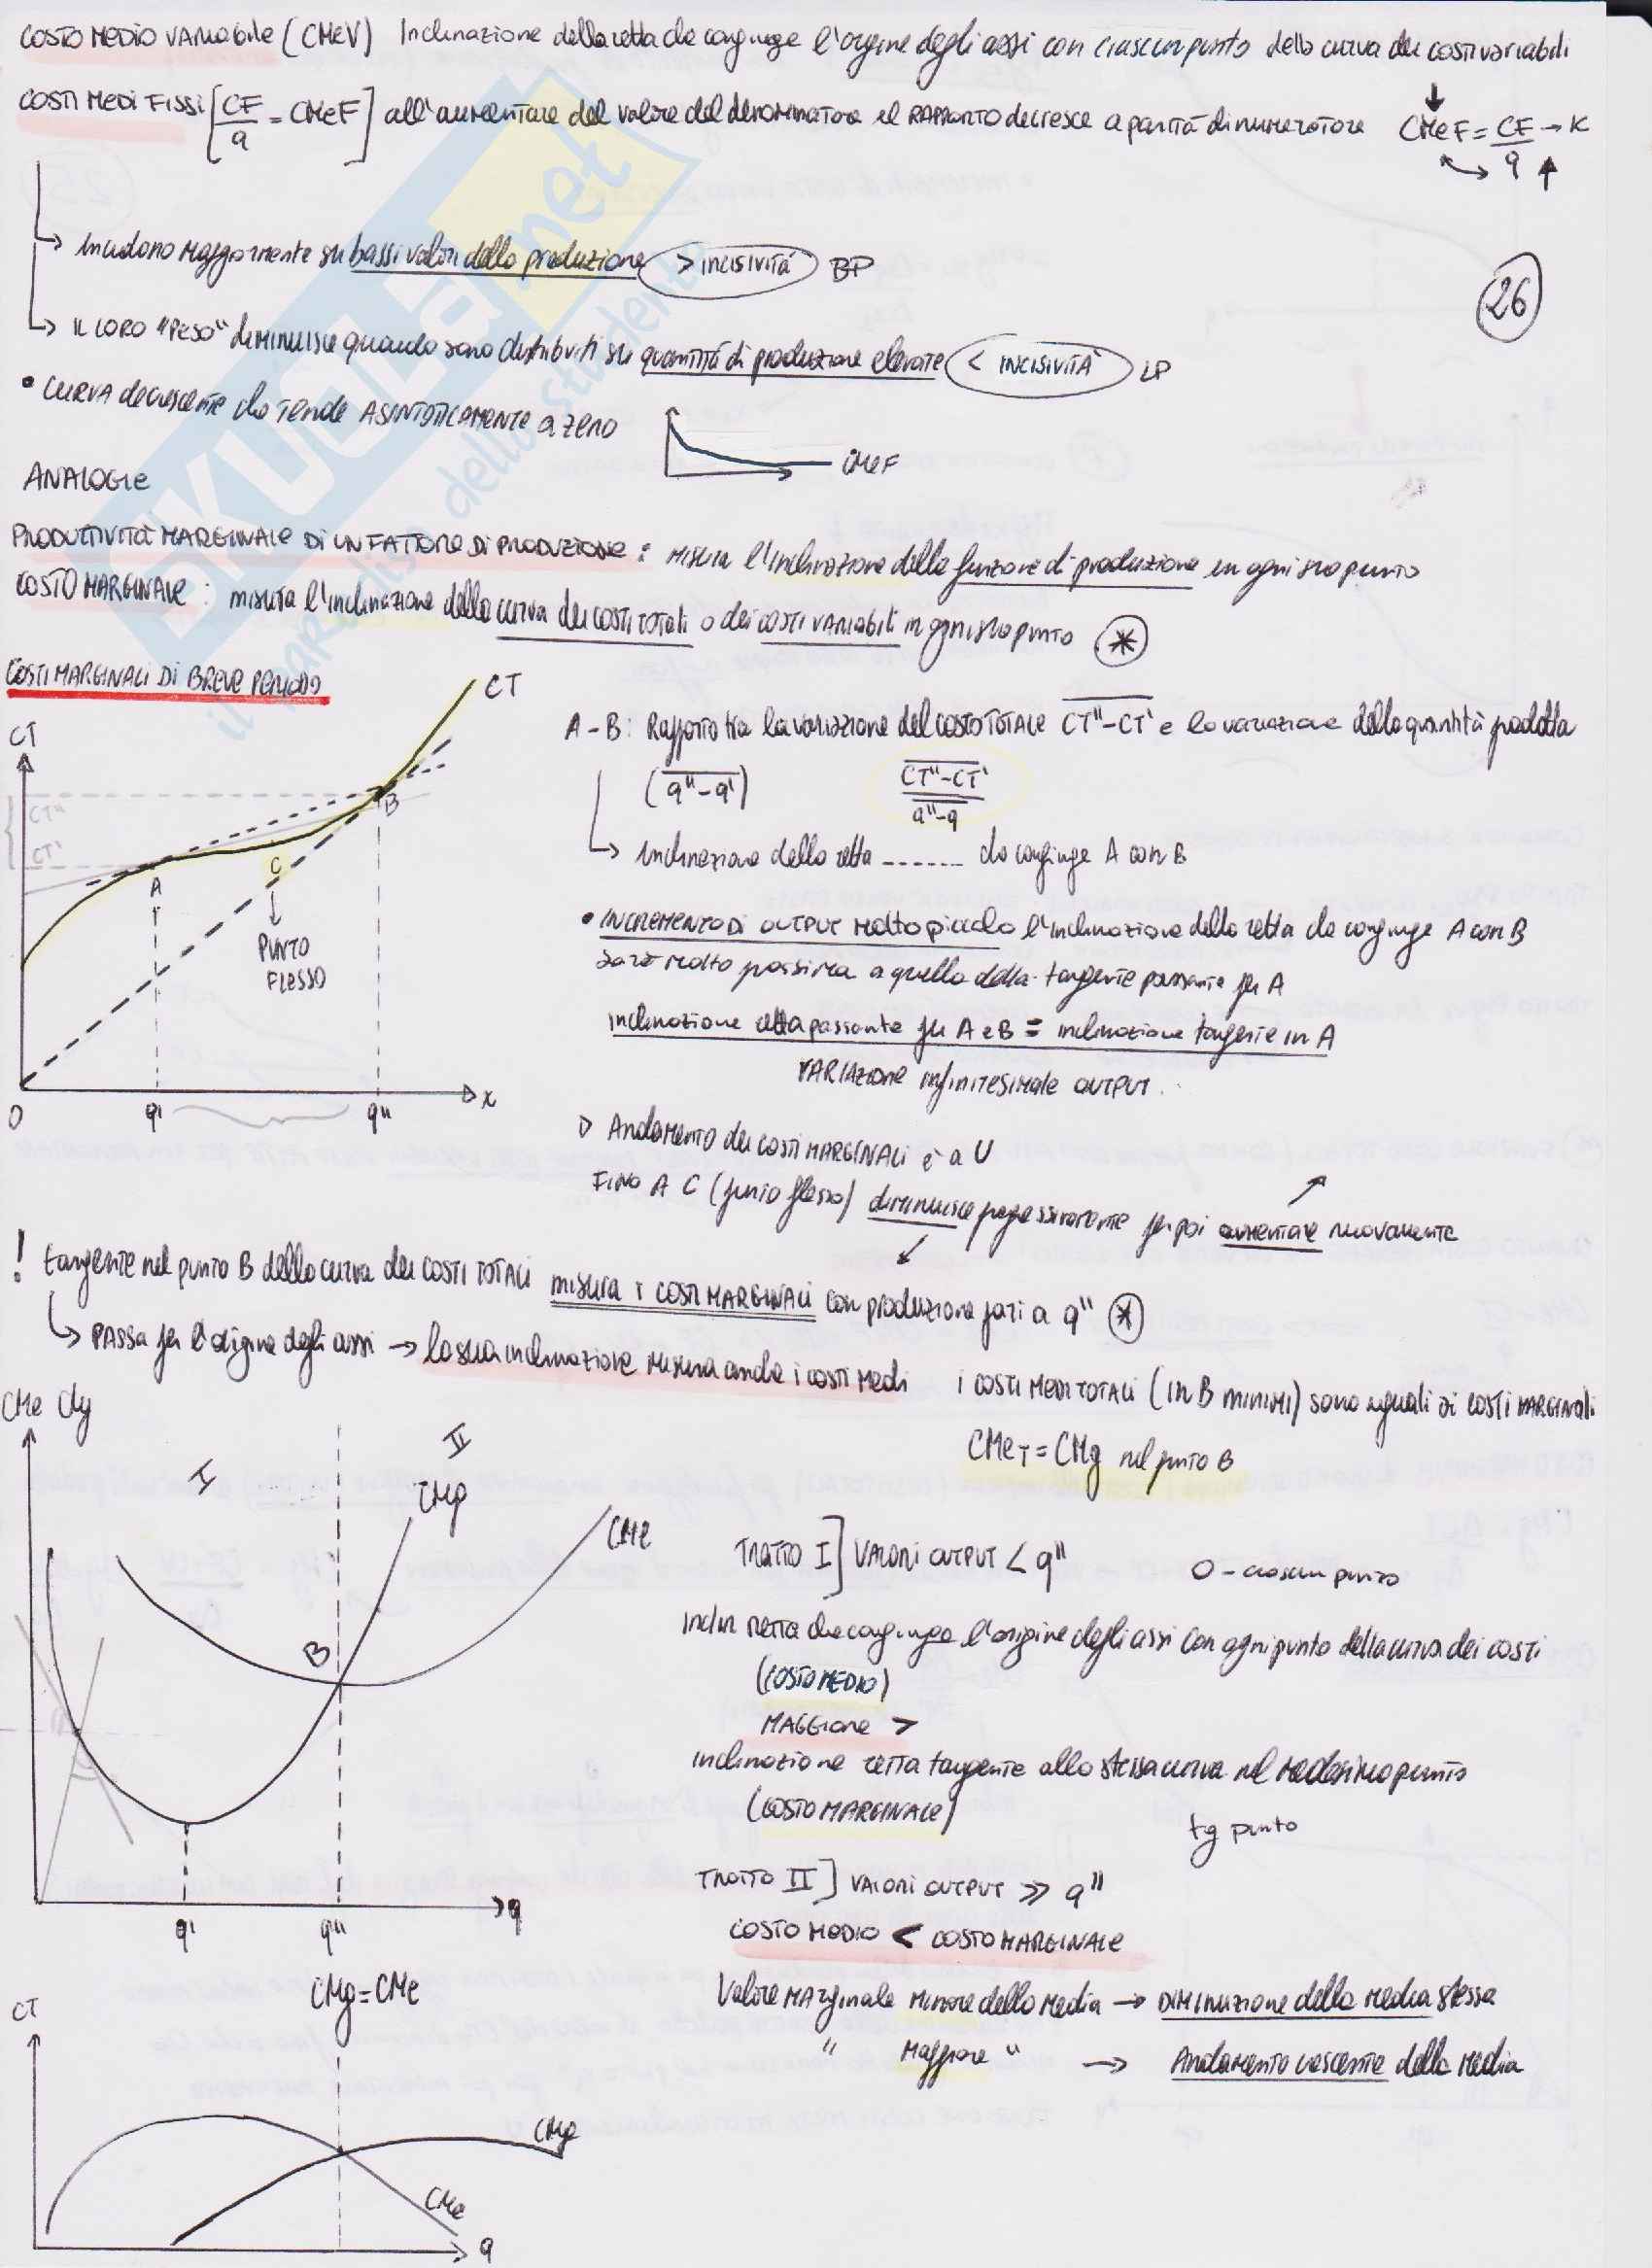 COSTO MEDIO VARIABILE (CMeV) Inclinazione della retta che congiunge l'origine degli assi con ciascun punto della curva dei costi variabili
COSTI MEDI FISSI [CF/q = CMeF] all'aumentare del valore del denominatore il RAPPORTO decresce a parità di numeratore CMeF = CF/q → K
Incidono Maggiormente su bassi valori della produzione > INCISIVITÀ BP
26
IL LORO "PESO" diMINUISCE quando sono distribuiti su quantità di produzione elevate < INCISIVITÀ LP
• CURVA decrescente che TENDE ASINTOTICAMENTE a ZERO
CMeF
ANALOGIE
PRODUTTIVITÀ MARGINALE DI UN FATTORE DI PRODUZIONE: MISURA l'inclinazione della funzione di produzione in ogni suo punto
COSTO MARGINALE: misura l'inclinazione della curva dei costi totali o dei costi variabili in ogni suo punto *
COSTI MARGINALI DI BREVE PERIODO
CT
CT
CT''
CT'
A
B
C
PUNTO
FLESSO
O q' q'' x
A-B: Rapporto tra la variazione del COSTO TOTALE CT''-CT' e la variazione della quantità prodotta
(q''-q') CT''-CT'/q''-q
Inclinazione della retta ------ che congiunge A con B
• INCREMENTO DI OUTPUT Molto piccolo l'inclinazione della retta che congiunge A con B
sarà molto prossima a quella della tangente passante per A
inclinazione retta passante per A e B = inclinazione tangente in A
VARIAZIONE infinitesimale OUTPUT.
▷ Andamento dei COSTI MARGINALI è a U
FINO A C (punto flesso) diminuisce progressivamente per poi aumentare nuovamente
! tangente nel punto B della curva dei COSTI TOTALI misura i COSTI MARGINALI con produzione pari a q'' *
PASSA per l'origine degli assi → la sua inclinazione misura anche i costi Medi i COSTI MEDI TOTALI (in B MINIMI) sono uguali ai COSTI MARGINALI
CMeT = CMg nel punto B
CMe
I
II
CMg
CMe
B
q' q'' q
CMg=CMe
TRATTO I] VALORI OUTPUT < q'' O - ciascun punto
Inclin RETTA che congiunge l'origine degli assi con ogni punto della curva dei costi
(COSTO MEDIO)
MAGGIORE >
inclinazione retta tangente alla stessa curva nel medesimo punto
(COSTO MARGINALE)
tg punto
TRATTO II] VALORI OUTPUT >> q''
COSTO MEDIO < COSTO MARGINALE
Valore MARginale Minore della Media → DIMINUZIONE della Media stessa
" Maggiore " → Andamento crescente della Media
CT
CMg
CMe
q
SKUOLA.net
il paradiso dello studente